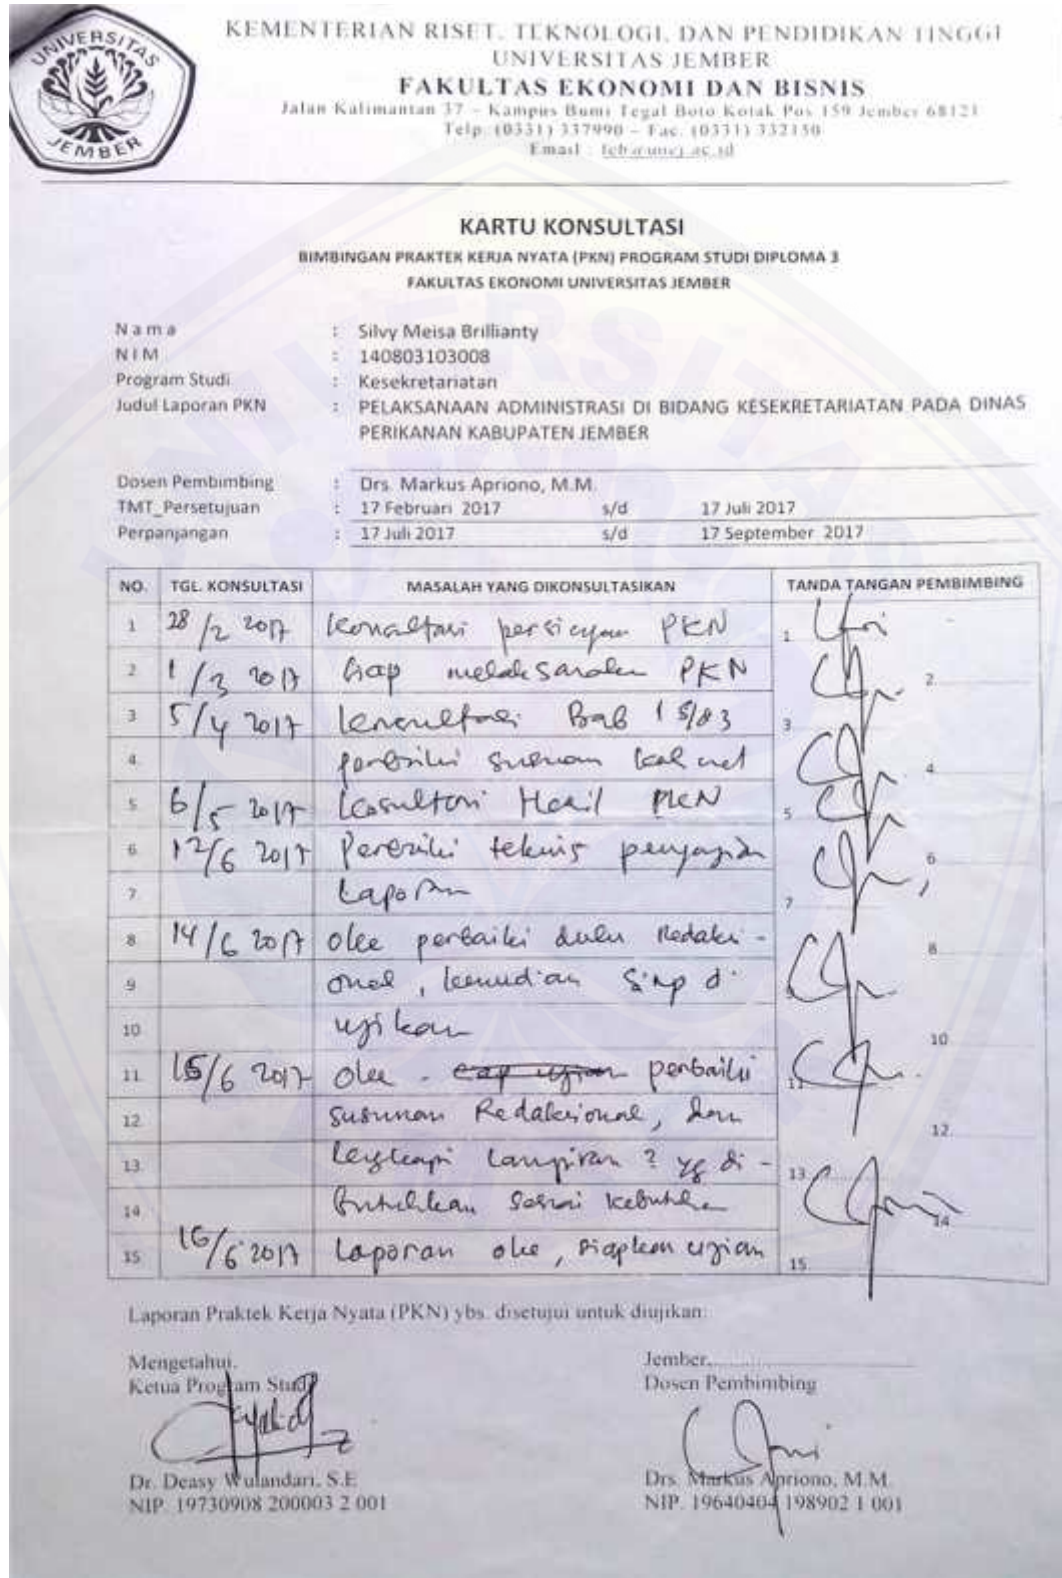 UNIVERSITAS
JEMBER
KEMENTERIAN RISET, TEKNOLOGI, DAN PENDIDIKAN TINGGI
UNIVERSITAS JEMBER
FAKULTAS EKONOMI DAN BISNIS
Jalan Kalimantan 37 – Kampus Bumi Tegal Boto Kotak Pos 159 Jember 68121
Telp. (0331) 337990 – Fac. (0331) 332150
Email : feb@unej.ac.id
KARTU KONSULTASI
BIMBINGAN PRAKTEK KERJA NYATA (PKN) PROGRAM STUDI DIPLOMA 3
FAKULTAS EKONOMI UNIVERSITAS JEMBER
N a m a : Silvy Meisa Brillianty
N I M : 140803103008
Program Studi : Kesekretariatan
Judul Laporan PKN : PELAKSANAAN ADMINISTRASI DI BIDANG KESEKRETARIATAN PADA DINAS
PERIKANAN KABUPATEN JEMBER
Dosen Pembimbing : Drs. Markus Apriono, M.M.
TMT_Persetujuan : 17 Februari 2017 s/d 17 Juli 2017
Perpanjangan : 17 Juli 2017 s/d 17 September 2017
NO. TGL. KONSULTASI MASALAH YANG DIKONSULTASIKAN TANDA TANGAN PEMBIMBING
1 28/2 2017 Konsultasi persiapan PKN 1
2 1/3 2017 Siap melaksanakan PKN 2
3 5/4 2017 Konsultasi Bab 1 s/d 3 3
4. perbaiki susunan 4
5 6/5 2017 Konsultasi Hasil PKN 5
6. 12/6 2017 Perbaiki teknis penyajian 6
7. Laporan 7
8 14/6 2017 oke perbaiki dulu Redaksi - 8
9 onal, kemudian siap di
10 ujikan 10
11. 15/6 2017 oke - siap ujian perbaiki 11
12. susunan Redaksional, dan 12
13. lengkapi lampiran 2 yg di - 13
14 butuhkan sesuai kebutuhan 14
15. 16/6 2017 Laporan oke, siapkan ujian 15
Laporan Praktek Kerja Nyata (PKN) ybs. disetujui untuk diujikan:
Mengetahui,
Ketua Program Studi
Dr. Deasy Wulandari, S.E
NIP. 19730908 200003 2 001
Jember,
Dosen Pembimbing
Drs. Markus Apriono, M.M.
NIP. 19640404 198902 1 001